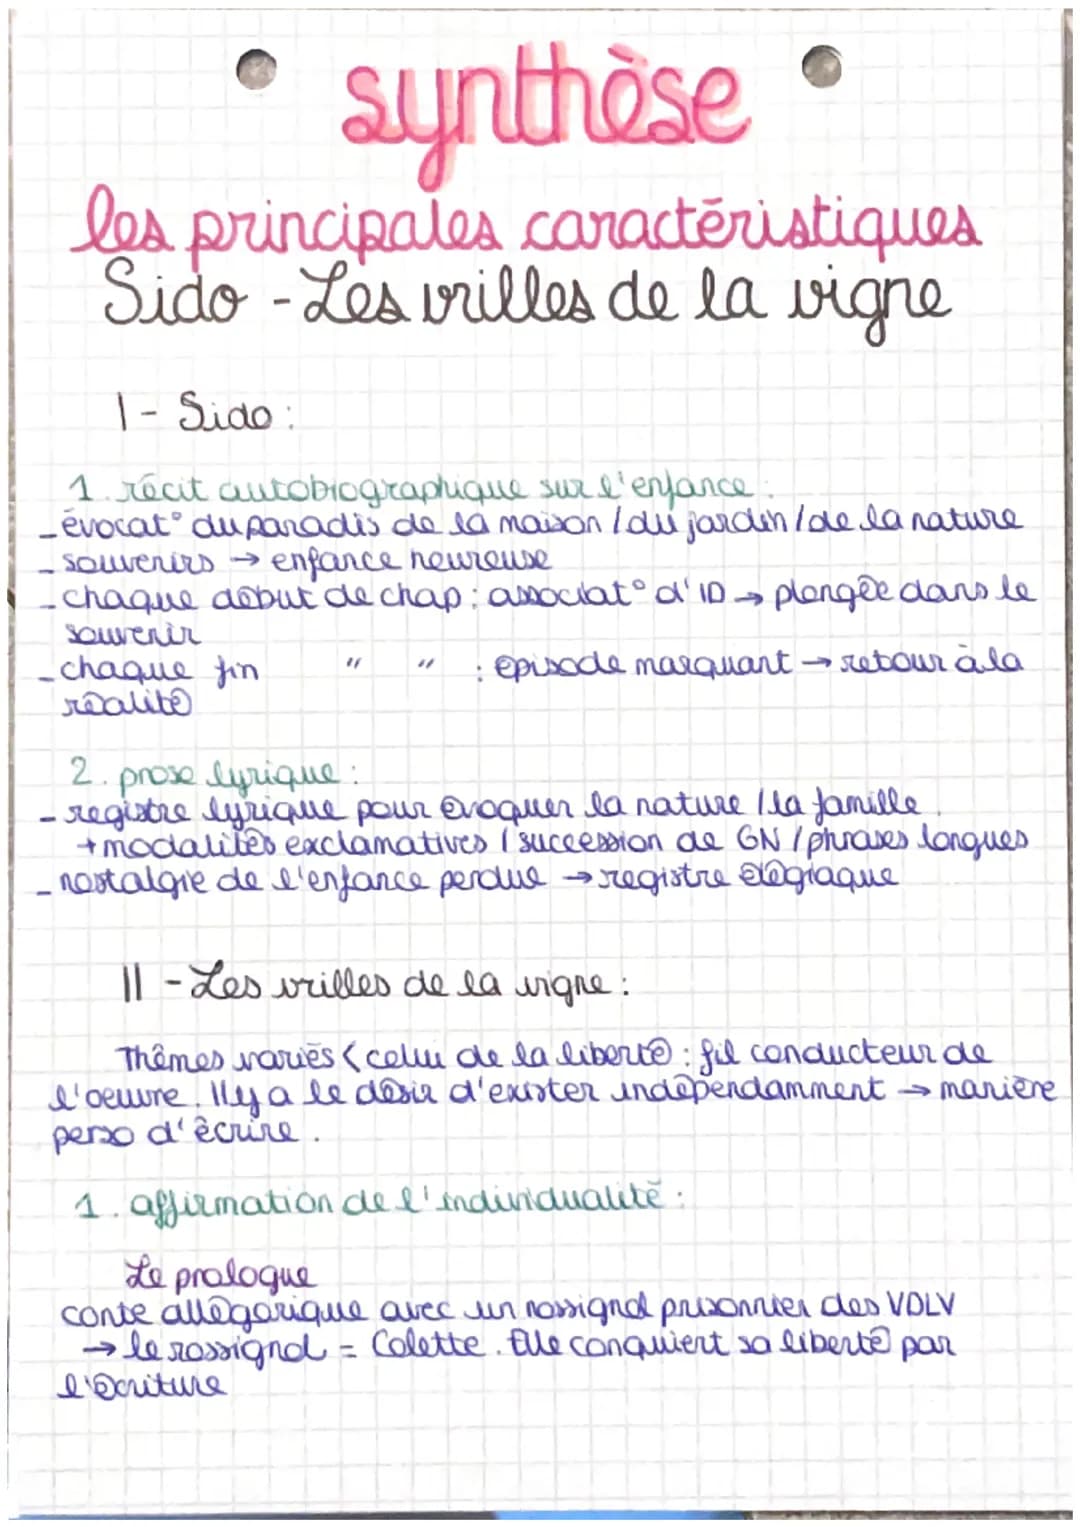 synthèse
les principales caractéristiques
Sido - Les vrilles de la vigne
I - Sido :
1. récit autobiographique sur l'enfance :
- évocat° du paradis de la maison / du jardin / de la nature
- souvenirs → enfance heureuse
- chaque début de chap : associat° d'ID → plongée dans le
souvenir
- chaque fin " " : épisode marquant → retour à la
réalité
2. prose lyrique :
- registre lyrique pour évoquer la nature / la famille.
+ modalités exclamatives / succession de GN / phrases longues
- nostalgie de l'enfance perdue → registre élégiaque
II - Les vrilles de la vigne :
Thêmes variés ( celui de la liberté : fil conducteur de
l'oeuvre. Il y a le désir d'exister indépendamment → manière
perso d'écrire.
1. affirmation de l'individualité :
Le prologue
conte allégorique avec un rossignol prisonnier des VDLV
→ le rossignol = Colette. Elle conquiert sa liberté par
l'écriture